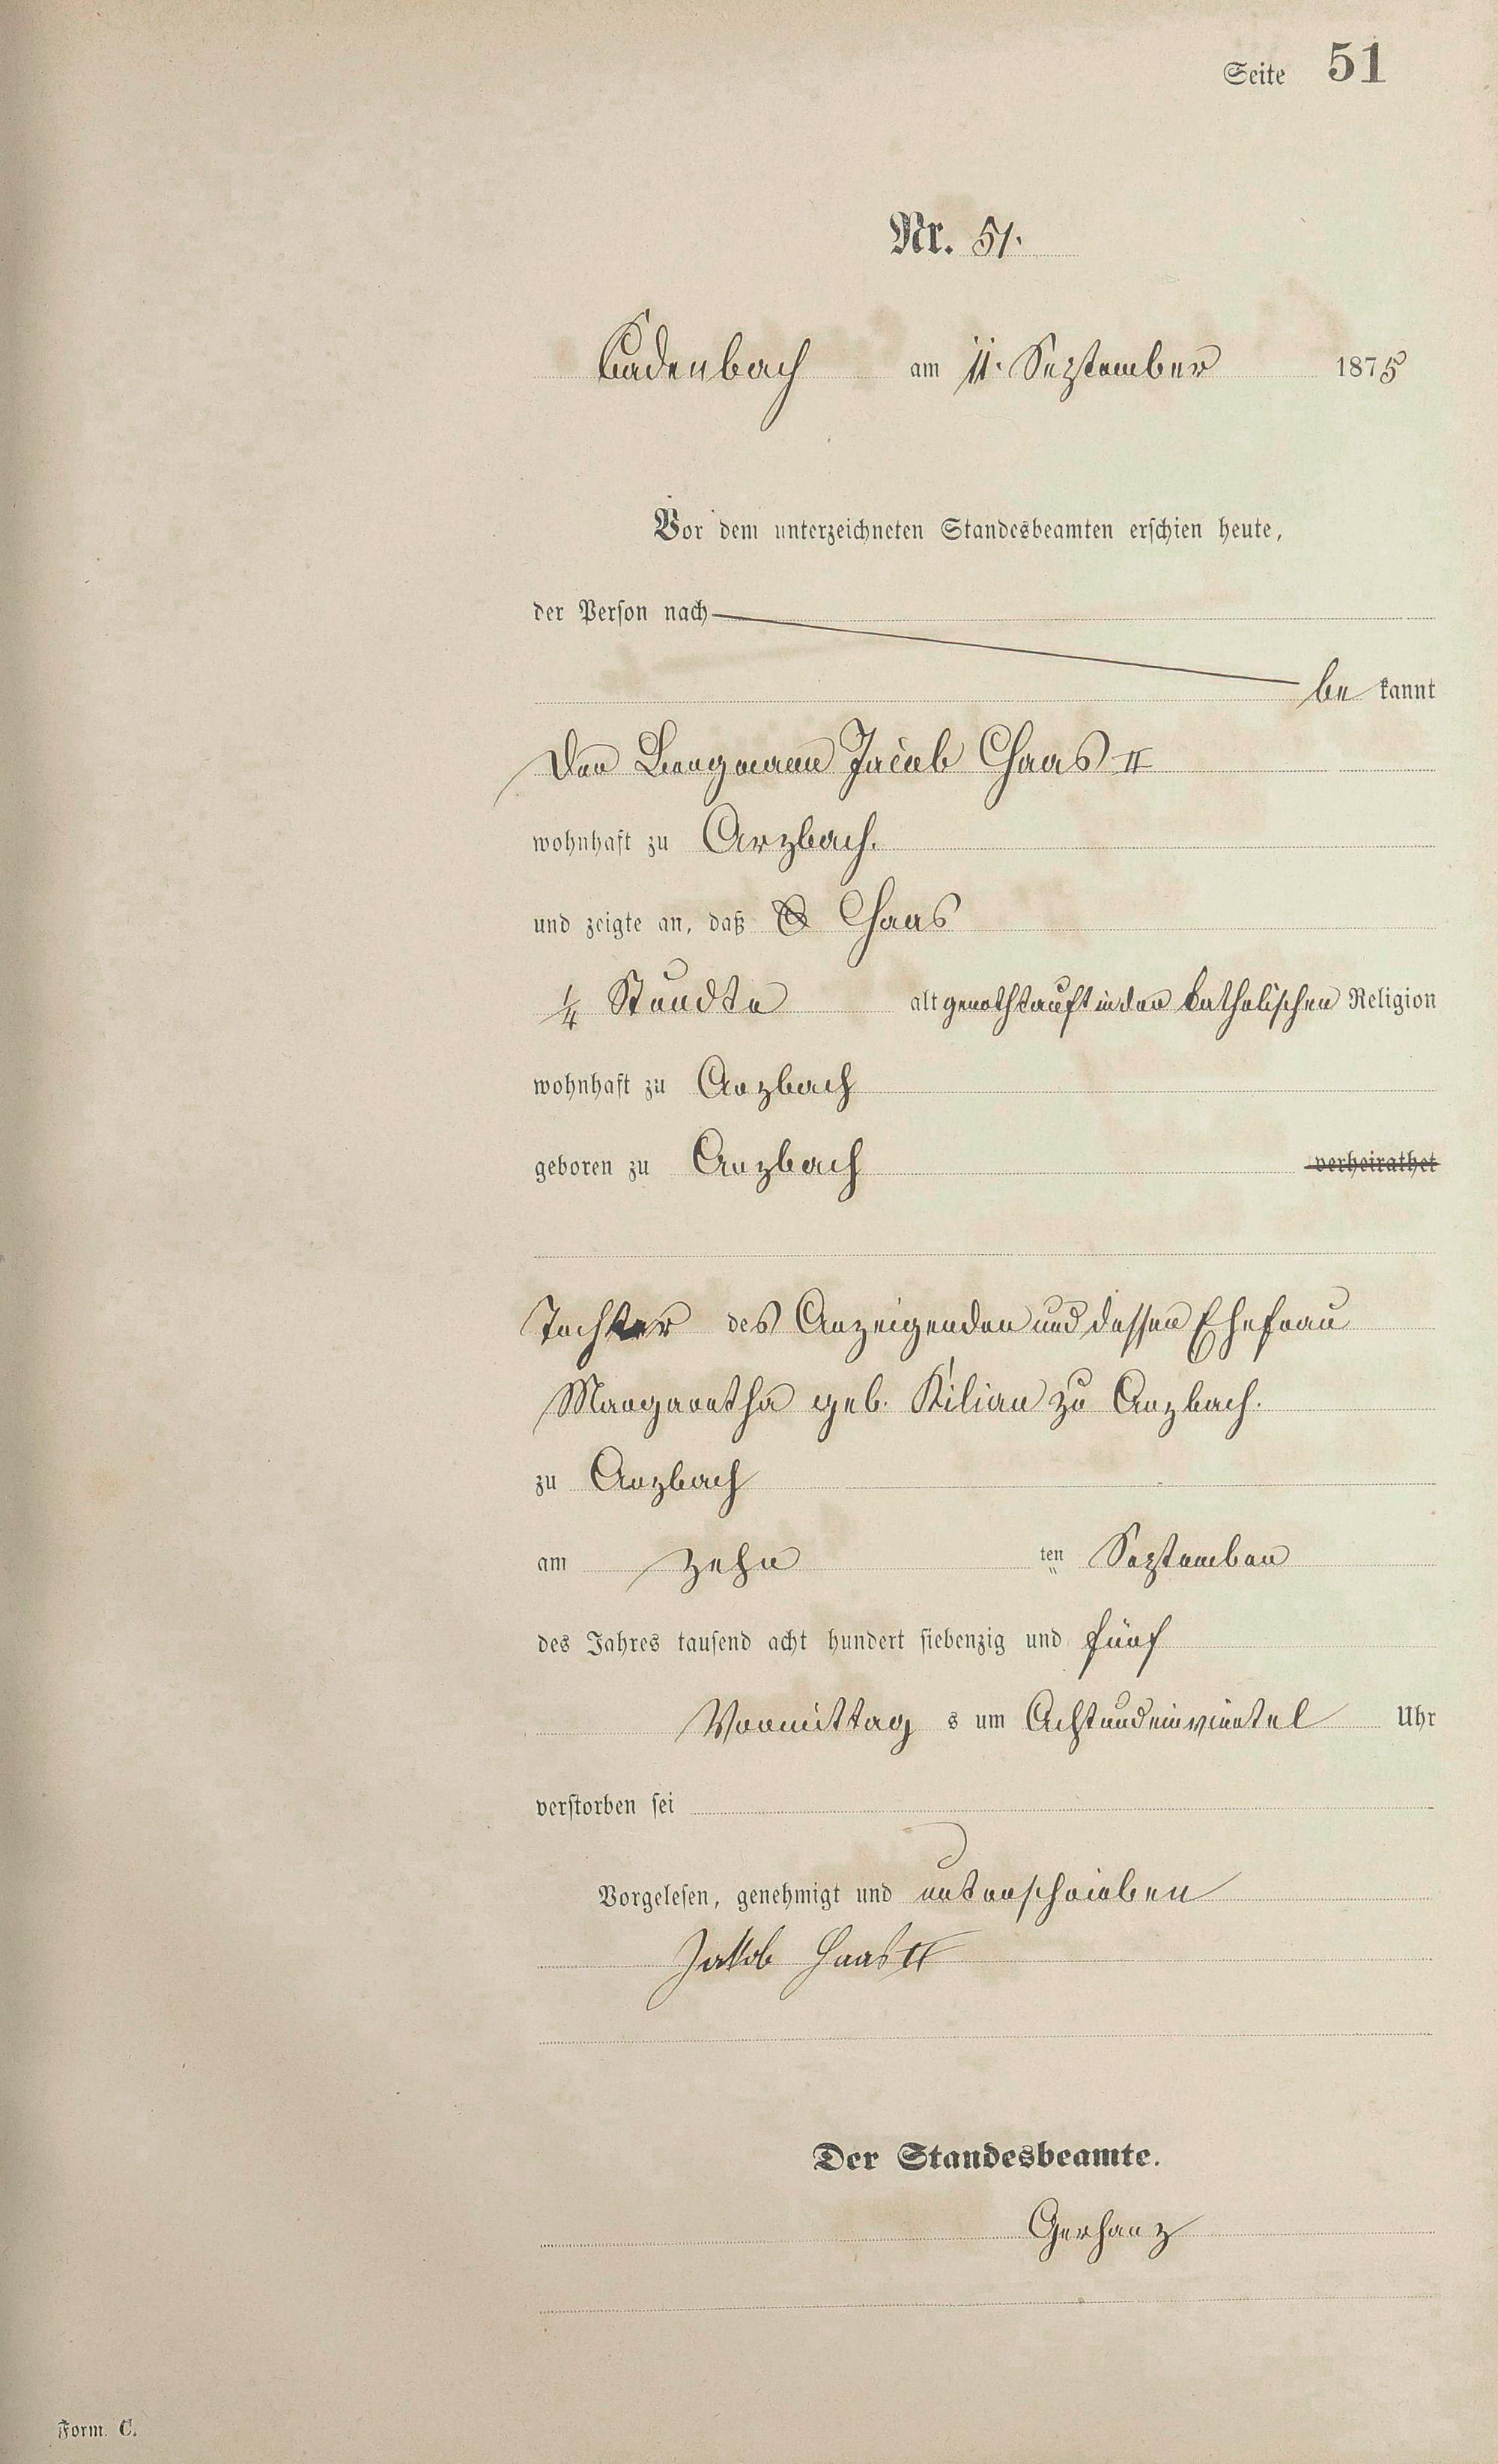 Seite 51
Nr. 51.
Kadenbach am 11. September 1875
Vor dem unterzeichneten Standesbeamten erschien heute,
der Person nach
be kannt
Der Bergmann Jacob Haas II
wohnhaft zu Arzbach.
und zeigte an, daß Haas
1/4 Stundte alt genothtauft in der katholischen Religion
wohnhaft zu Arzbach
geboren zu Arzbach verheirathet
Tochter des Anzeigenden und dessen Ehefrau
Margaretha geb. Kilian zu Arzbach.
zu Arzbach
am zehn ten September
des Jahres tausend acht hundert siebenzig und fünf
Vormittag s um Achtundeinviertel Uhr
verstorben sei
Vorgelesen, genehmigt und unterschrieben
Jakob Haas II
Der Standesbeamte.
Gerhanz
Form. C.